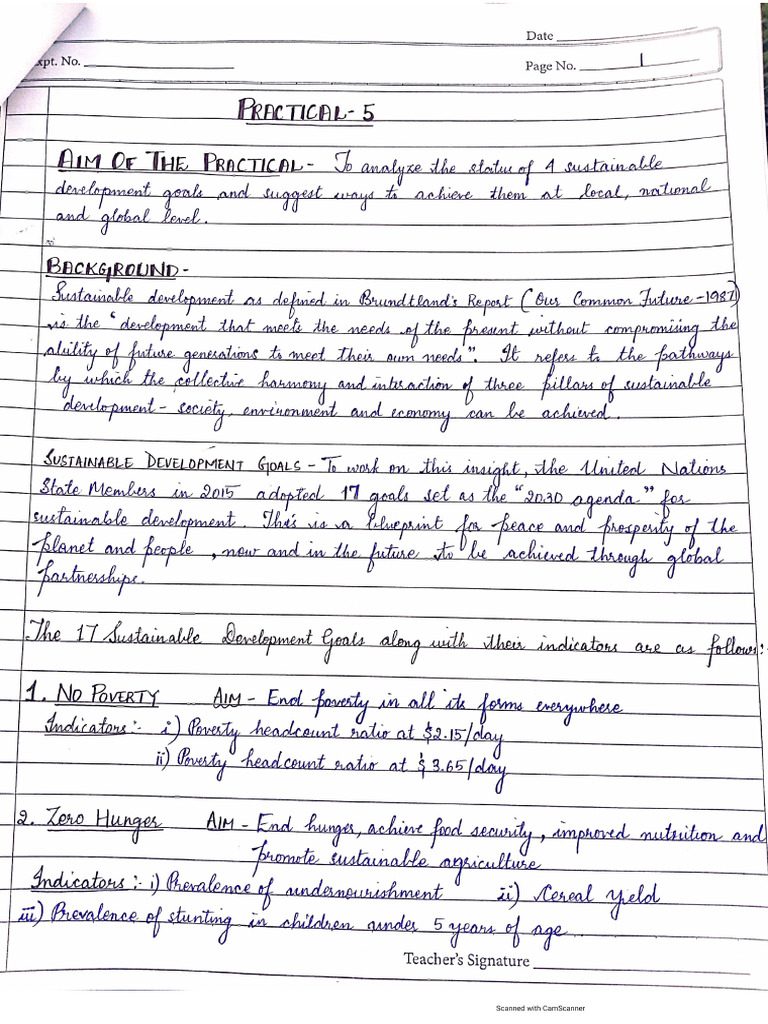 Date
xpt. No.
Page No. 1
PRACTICAL-5
AIM OF THE PRACTICAL- To analyze the status of 4 sustainable
development goals and suggest ways to achieve them at local, national
and global level.
BACKGROUND-
Sustainable development as defined in Brundtland's Report (Our Common Future-1987)
is the "development that meets the needs of the present without compromising the
ability of future generations to meet their own needs". It refers to the pathways
by which the collective harmony and interaction of three pillars of sustainable
development- society, environment and economy can be achieved.
SUSTAINABLE DEVELOPMENT GOALS - To work on this insight, the United Nations
State Members in 2015 adopted 17 goals set as the "2030 agenda" for
sustainable development. This is a blueprint for peace and prosperity of the
planet and people, now and in the future to be achieved through global
partnerships.
The 17 Sustainable Development Goals along with their indicators are as follows:-
1. NO POVERTY AIM - End poverty in all its forms everywhere
Indicators:- i) Poverty headcount ratio at $2.15/day
ii) Poverty headcount ratio at $3.65/day
2. Zero Hunger AIM - End hunger, achieve food security, improved nutrition and
promote sustainable agriculture
Indicators:- i) Prevalence of undernourishment ii) Cereal yield
iii) Prevalence of stunting in children under 5 years of age.
Teacher's Signature
Scanned with CamScanner